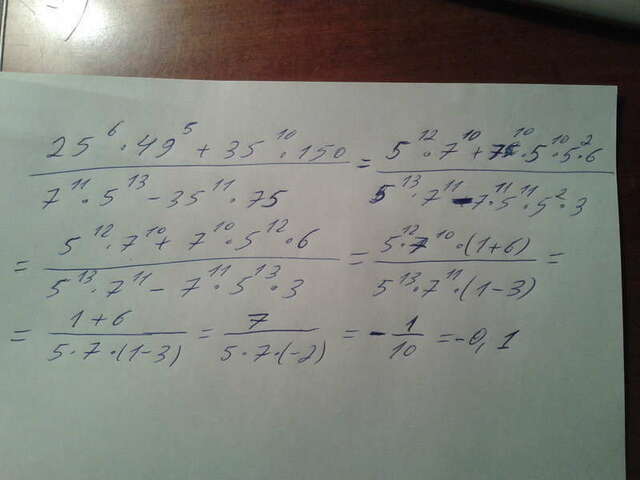 (25⁶·49⁵ + 35¹⁰·150)/(7¹¹·5¹³ − 35¹¹·75) = (5¹²·7¹⁰ + 7¹⁰·5¹⁰·5²·6)/(5¹³·7¹¹ − 7¹¹·5¹¹·5²·3)
= (5¹²·7¹⁰ + 7¹⁰·5¹²·6)/(5¹³·7¹¹ − 7¹¹·5¹³·3) = (5¹²·7¹⁰·(1+6))/(5¹³·7¹¹·(1−3)) =
= (1+6)/(5·7·(1−3)) = 7/(5·7·(−2)) = −1/10 = −0,1